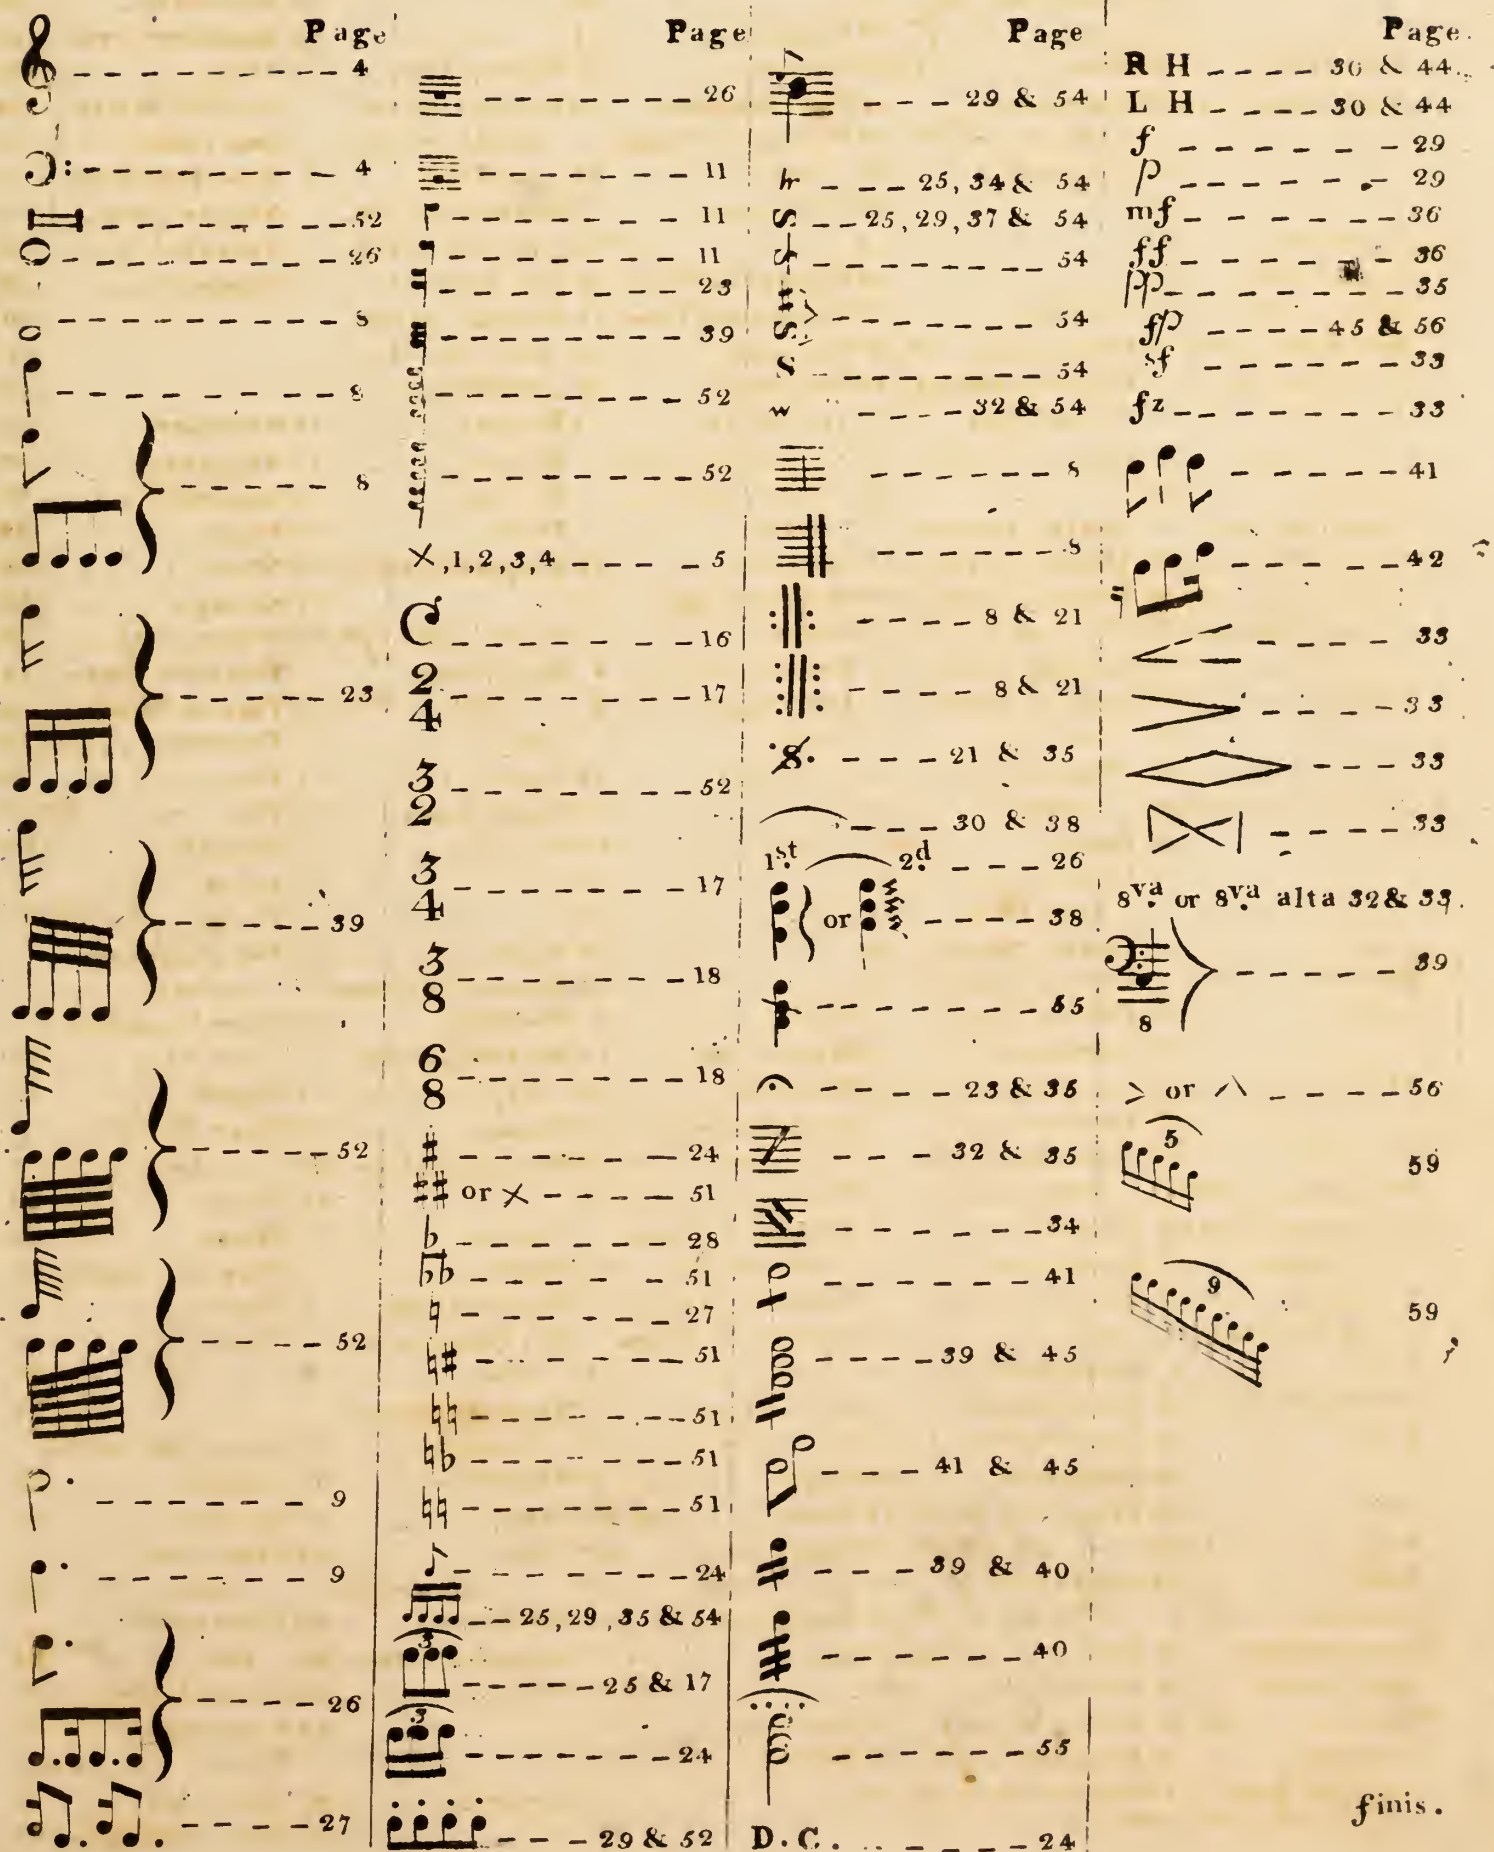 Page
4
4
52
26
8
8
8
23
39
52
52
9
9
26
27
Page
26
11
11
11
23
39
52
52
×,1,2,3,4 5
C 16
2
4 17
3
2 52
3
4 17
3
8 18
6
8 18
♯ 24
♯♯ or × 51
♭ 28
♭♭ 51
♮ 27
♮♯ 51
♮♮ 51
♮♭ 51
♮♮ 51
24
25, 29, 35 & 54
3
25 & 17
3
24
29 & 52
Page
29 & 54
tr 25, 34 & 54
25, 29, 37 & 54
54
54
54
32 & 54
8
8
8 & 21
8 & 21
21 & 35
30 & 38
1st 2d 26
or 38
55
23 & 35
32 & 35
34
41
39 & 45
41 & 45
39 & 40
40
55
D.C. 24
Page.
R H 30 & 44
L H 30 & 44
f 29
p 29
mf 36
ff 36
pp 35
fp 45 & 56
sf 33
fz 33
41
42
33
33
33
33
8va or 8va alta 32 & 33.
39
8
> or ∧ 56
5
59
9
59
finis.